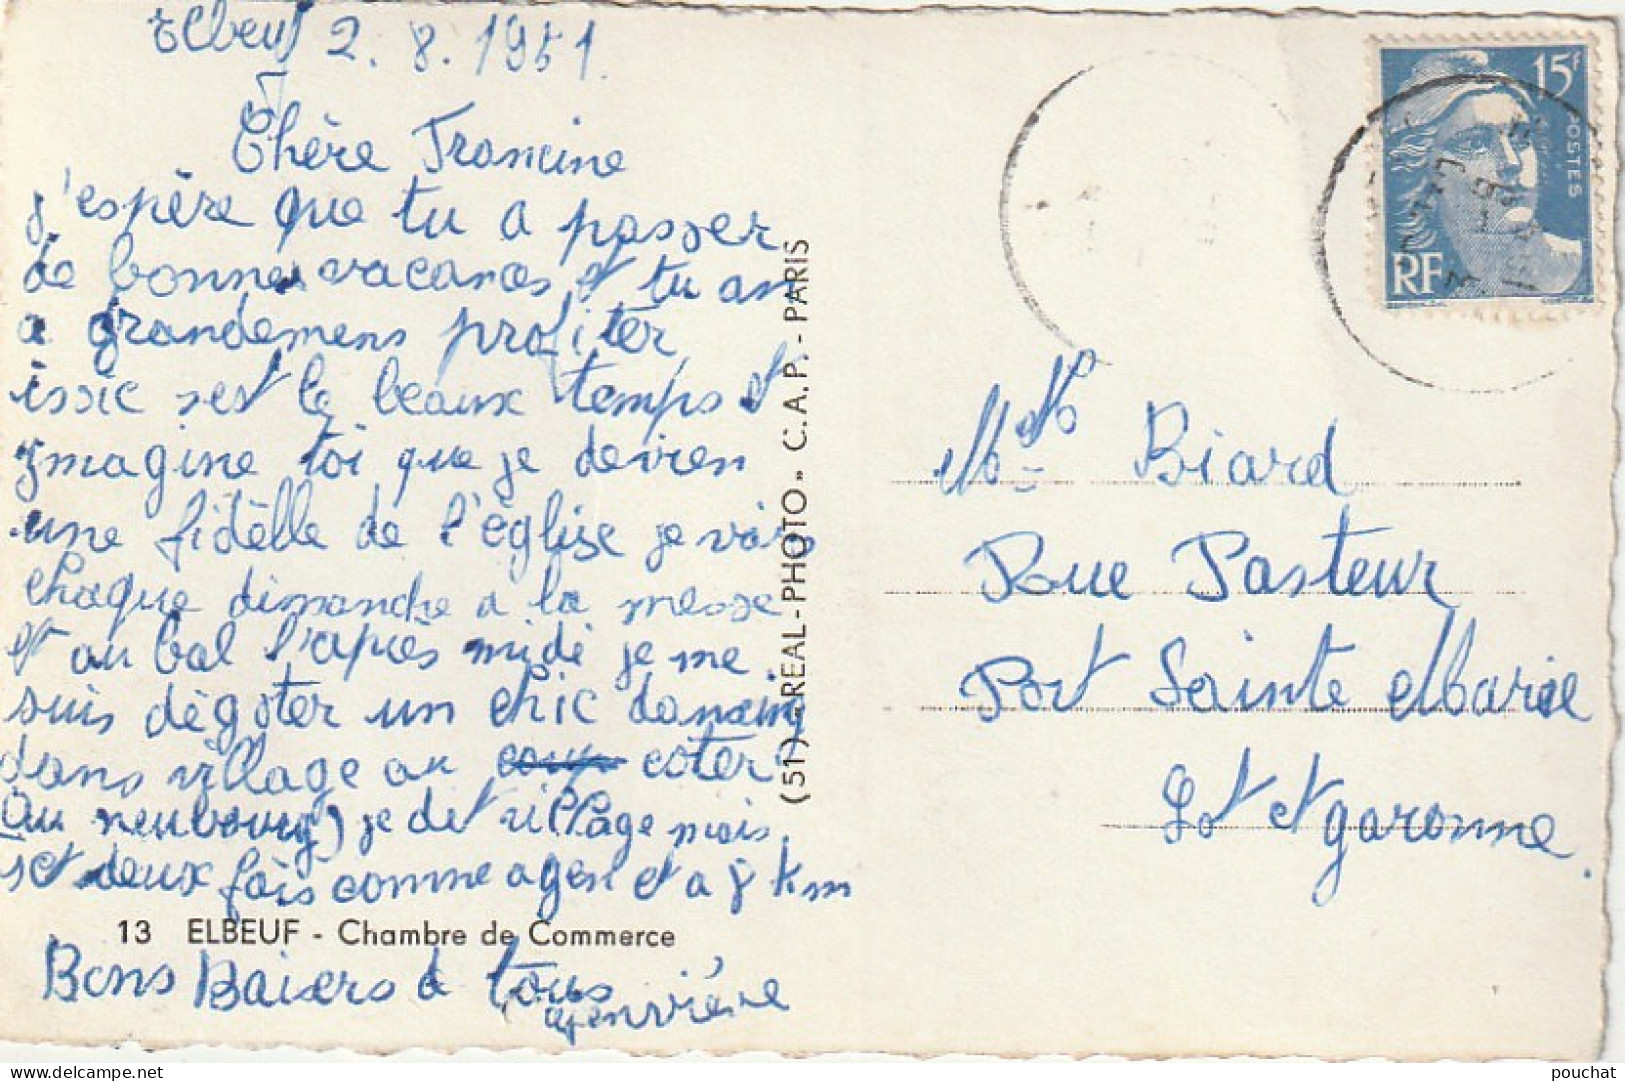 Elbeuf 2.8.1951
Chère Francine
j'espère que tu a passer
de bonnes vacances et tu as
a grandemens profiter
issic set le beaux temps et
ymagine toi que je devien
une fidèlle de l'église je vais
chaque dimanche a la messe
et au bal l'après midi je me
suis dégoter un chic dancing
dans village au coter
(au neubourg) je dit village mais
set deux fois comme agen et a 8 km
13 ELBEUF - Chambre de Commerce
Bons Baisers à tous
Genviève
(51) REAL-PHOTO" C.A.P. - PARIS
15F
POSTES
RF
Biard
Rue Pasteur
Port Sainte Marie
Lot et garonne.
pouchat